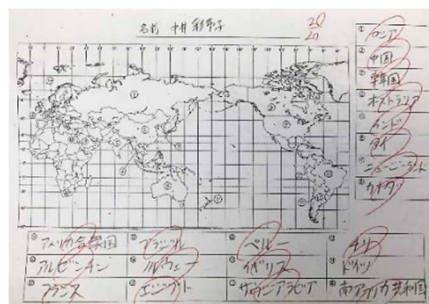 名前 中井 彩子
20
20
① ロシア
② 中国
③ 韓国
④ オーストラリア
⑤ インド
⑥ タイ
⑦ ニュージーランド
⑧ カナダ
⑨ アメリカ合衆国
⑩ ブラジル
⑪ ペルー
⑫ チリ
⑬ アルゼンチン
⑭ ノルウェー
⑮ イギリス
⑯ ドイツ
⑰ フランス
⑱ エジプト
⑲ サウジアラビア
⑳ 南アフリカ共和国